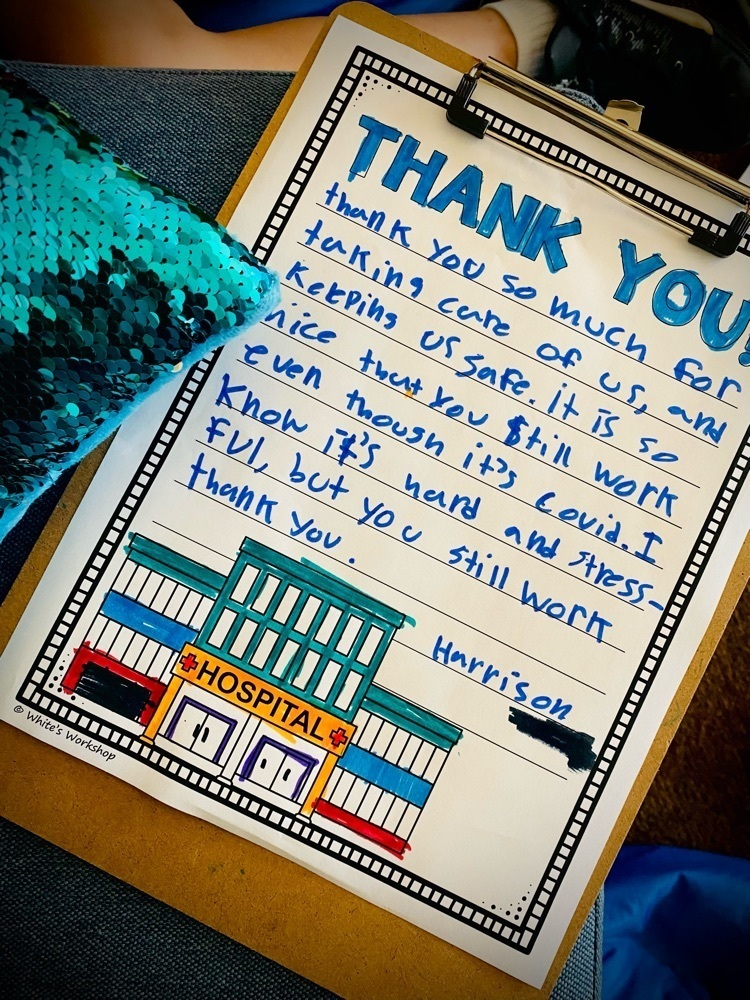 THANK YOU!
thank you so much for
taking care of us, and
Keeping us safe. it is so
nice that you still work
even though it's covid. I
Know it's hard and stress-
ful, but you still work
thank you.
Harrison
HOSPITAL
© White's Workshop